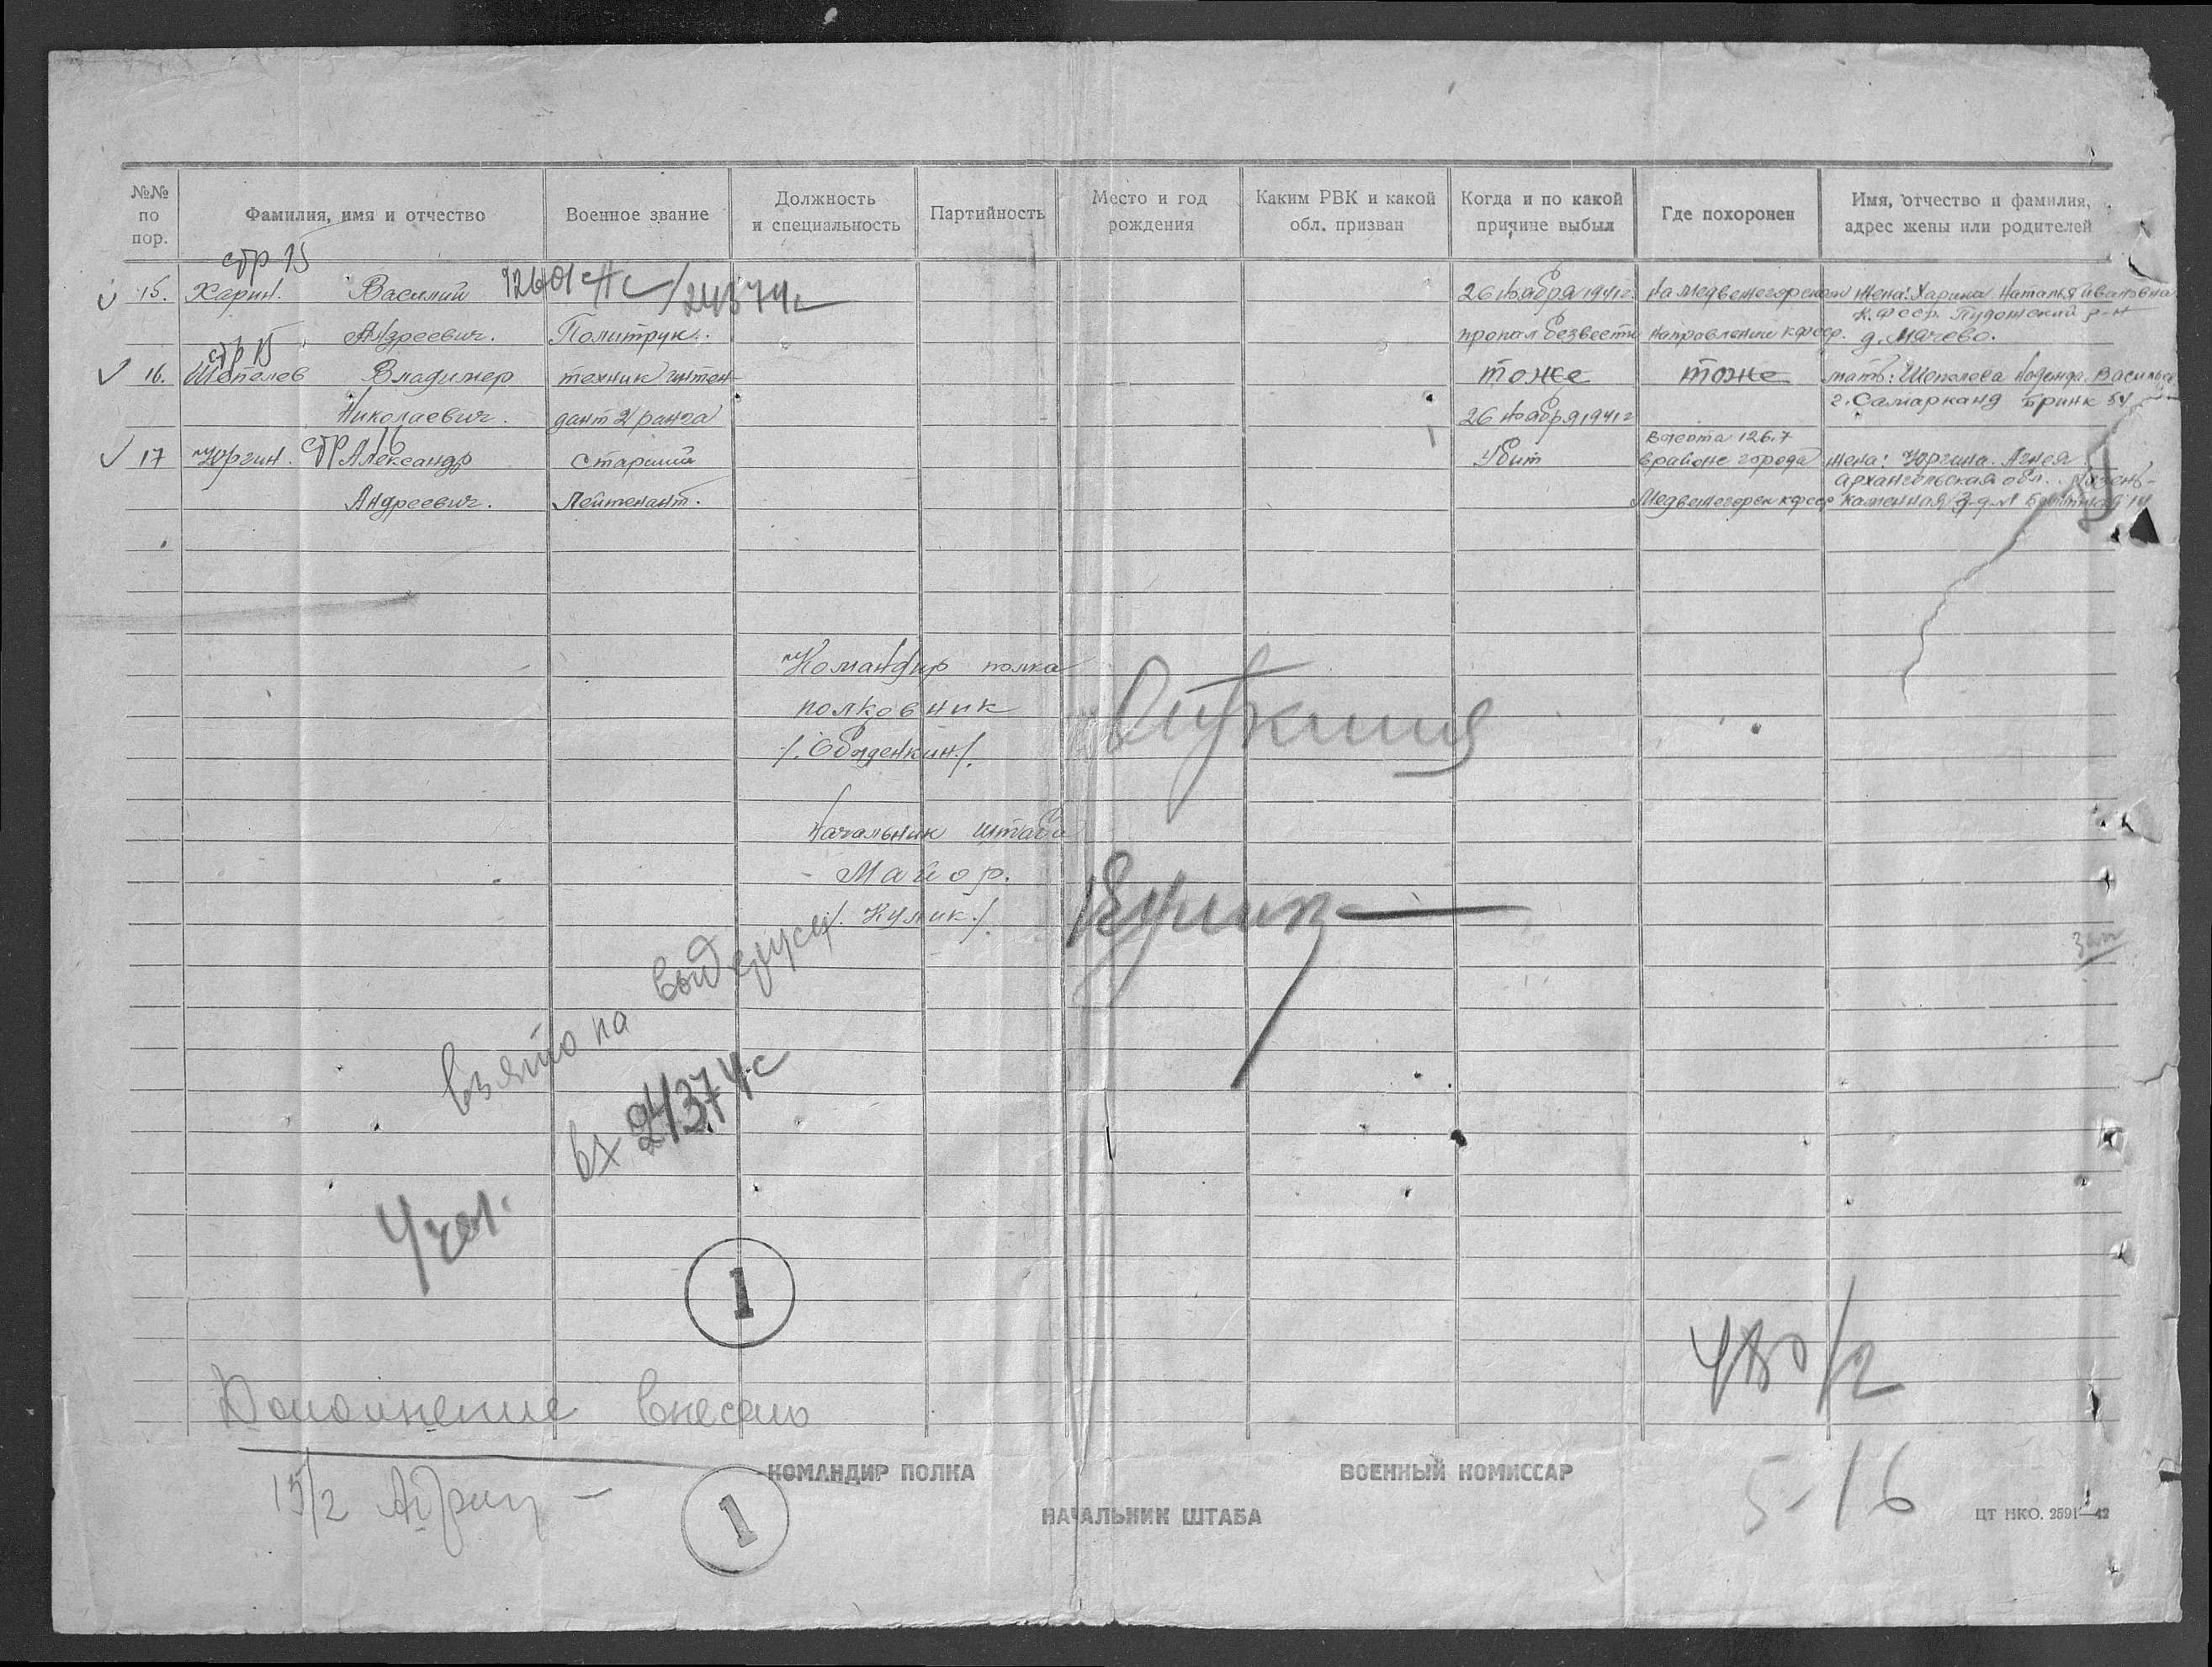 №№ по пор.
Фамилия, имя и отчество
Военное звание
Должность и специальность
Партийность
Место и год рождения
Каким РВК и какой обл. призван
Когда и по какой причине выбыл
Где похоронен
Имя, отчество и фамилия, адрес жены или родителей
стр 15
15. Харин. Василий 26 ноября 1941 г. На Медвежегорском жена: Харина Наталья Ивановна
К.Ф.ССР. Пудожский р-н
Андреевич. Политрук. пропал безвести направлении кфсср. д. Мячево.
стр 15
16. Шепелев Владимер техник интен- тоже тоже мать: Шепелева
Николаевич. дант 2 ранга 26 ноября 1941 г г. Самарканд
стр 16
Высота 126.7
17 Юргин. Александр Старший Убит в районе города жена: Юргина. Агнея
Архангельская обл.
Андреевич. Лейтенант. Медвежегорск кфсср Каменная
Командир полка
полковник
/. Обыденкин./.
Начальник штаба
Майор.
/. Кулик./.
Кулик
взято на выдержку
вх 24374с
4 чел.
1
480/2
Дополнение внесено
КОМАНДИР ПОЛКА
ВОЕННЫЙ КОМИССАР
15/2
1
НАЧАЛЬНИК ШТАБА
5-16
ЦТ НКО. 2591—42